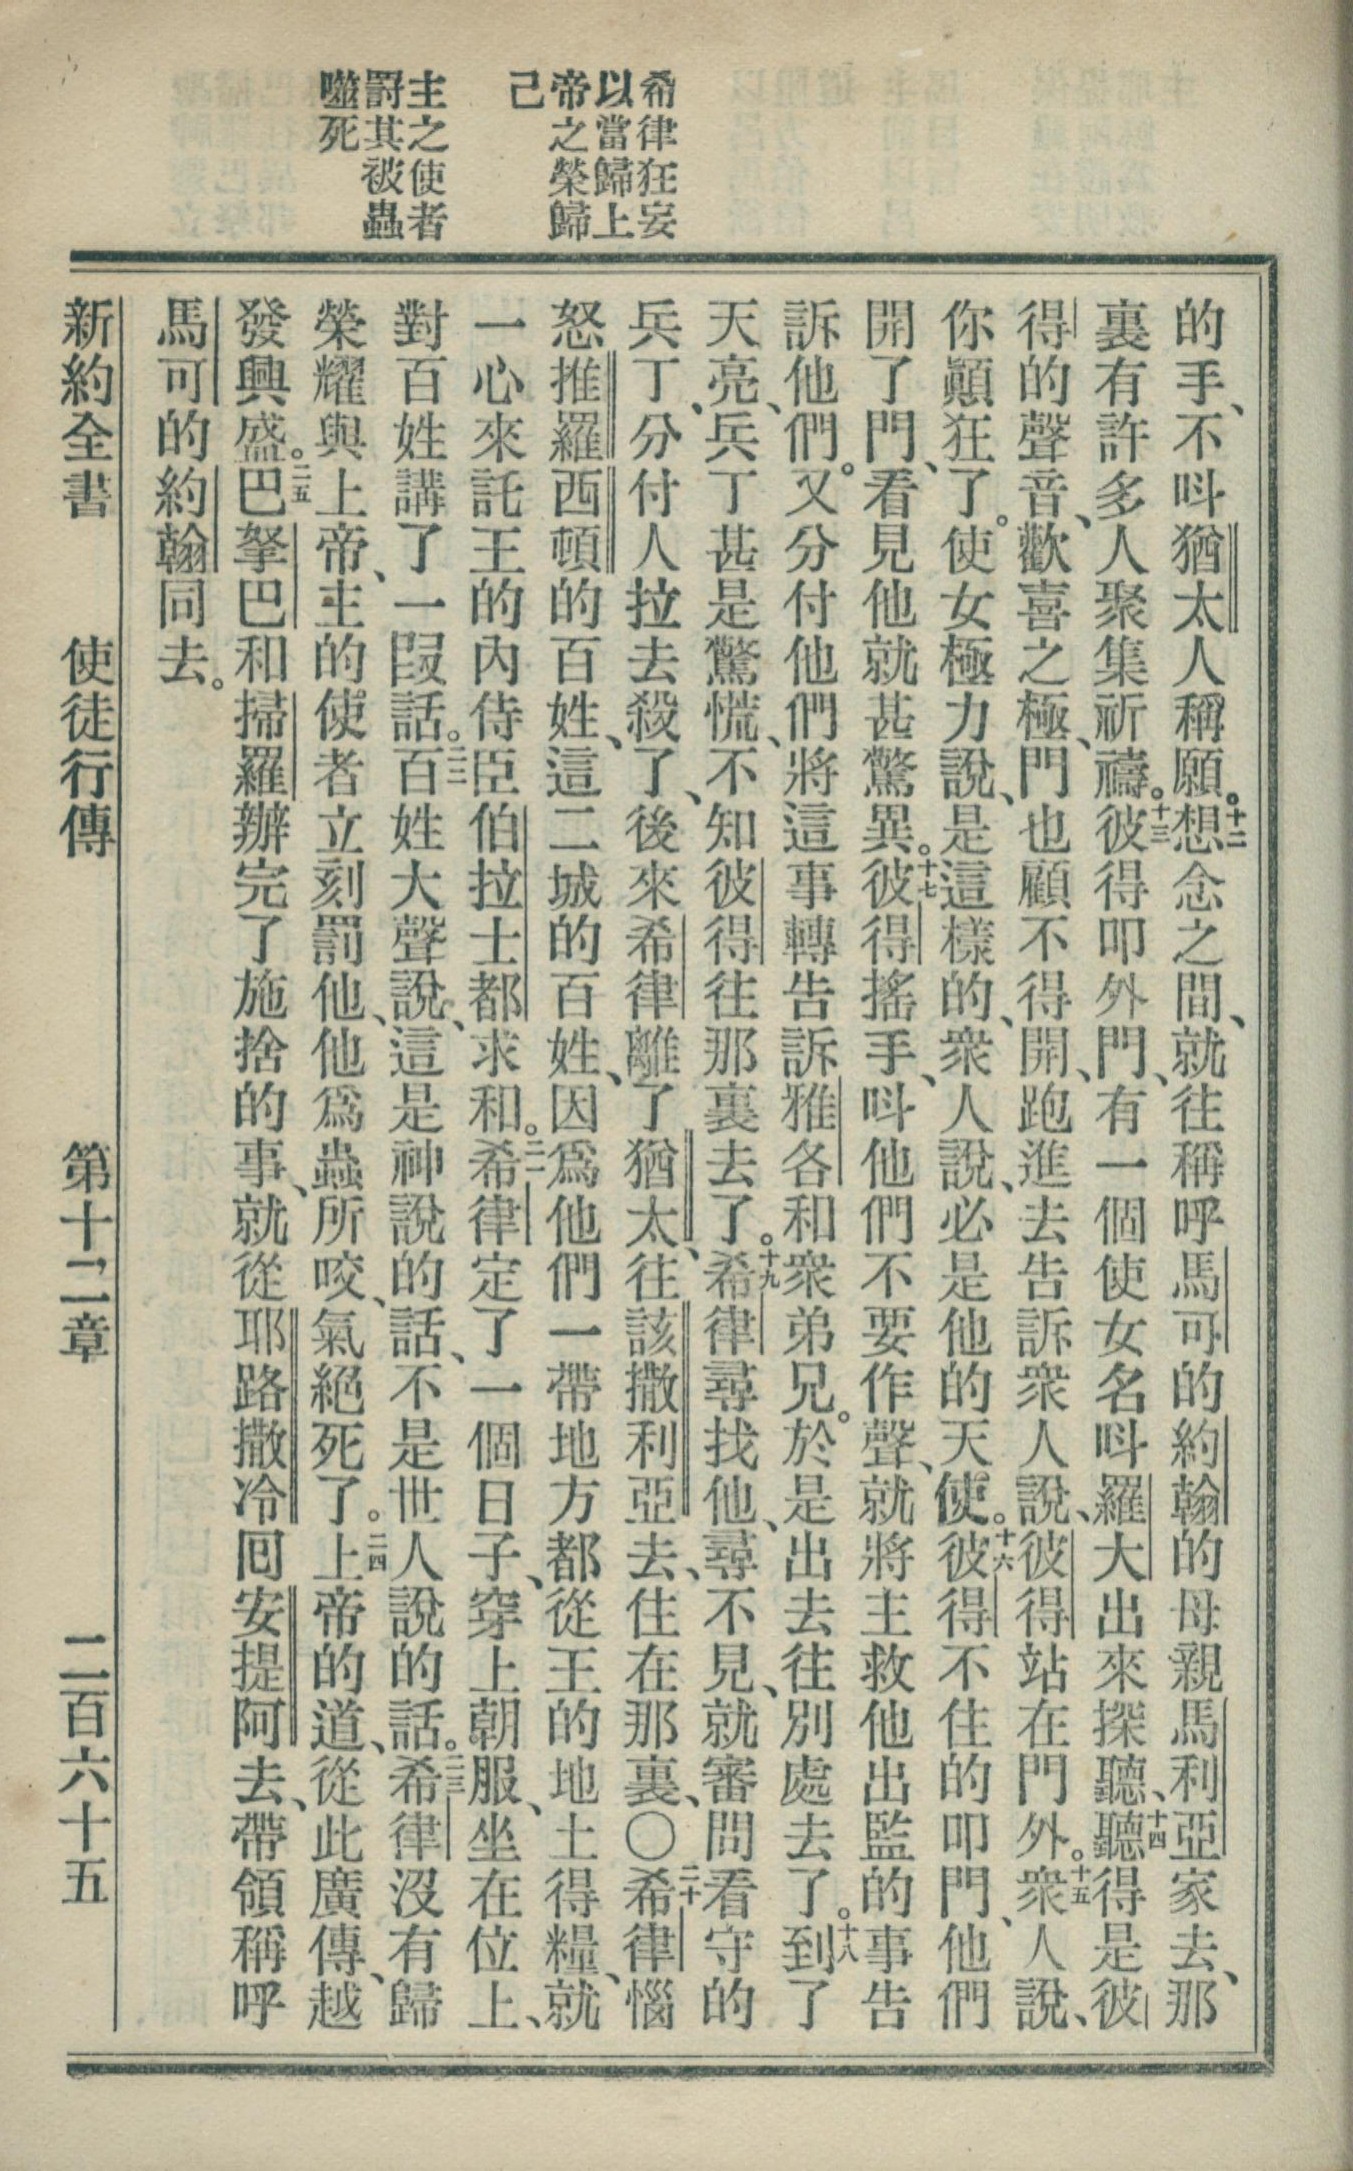 希律狂妄
以當歸上
帝之榮歸
己
主之使者
罰其被蟲
噬死
的手、不呌猶太人稱願。十二想念之間、就往稱呼馬可的約翰的母親馬利亞家去、那
裏有許多人聚集祈禱。十三彼得叩外門、有一個使女名呌羅大出來探聽、十四聽得是彼
得的聲音、歡喜之極、門也顧不得開、跑進去告訴衆人說、彼得站在門外。十五衆人說、
你顚狂了。使女極力說、是這樣的、衆人說、必是他的天使。十六彼得不住的叩門、他們
開了門、看見他就甚驚異。十七彼得搖手、呌他們不要作聲、就將主救他出監的事告
訴他們。又分付他們將這事轉告訴雅各和衆弟兄。於是出去往別處去了。十八到了
天亮、兵丁甚是驚慌、不知彼得往那裏去了。十九希律尋找他、尋不見、就審問看守的
兵丁、分付人拉去殺了、後來希律離了猶太、往該撒利亞去、住在那裏、〇二十希律惱
怒推羅西頓的百姓、這二城的百姓、因爲他們一帶地方都從王的地土得糧、就
一心來託王的內侍臣伯拉士都求和。二一希律定了一個日子、穿上朝服、坐在位上、
對百姓講了一叚話。二二百姓大聲說、這是神說的話、不是世人說的話。二三希律沒有歸
榮耀與上帝、主的使者立刻罰他、他爲蟲所咬、氣絕死了。二四上帝的道、從此廣傳、越
發興盛。二五巴拏巴和掃羅辦完了施捨的事、就從耶路撒冷囘安提阿去、帶領稱呼
馬可的約翰同去。
新約全書　使徒行傳　第十二章　二百六十五